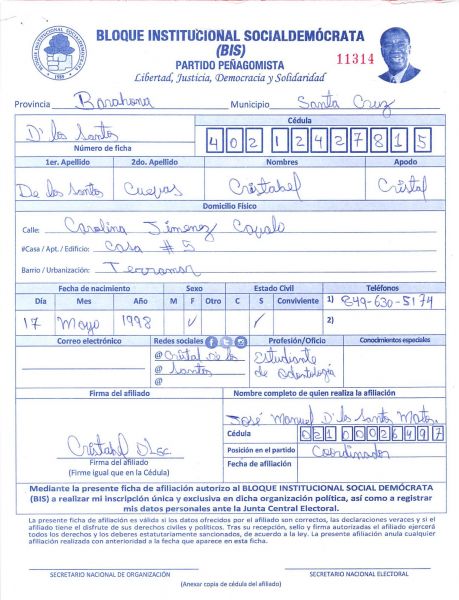 BLOQUE INSTITUCIONAL SOCIALDEMÓCRATA
(BIS)
PARTIDO PEÑAGOMISTA
Libertad, Justicia, Democracia y Solidaridad
11314
BLOQUE INSTITUCIONAL SOCIALDEMÓCRATA
1989
Provincia Barahona Municipio Santa Cruz
D' los Santos
Número de ficha
Cédula
40212427815
1er. Apellido 2do. Apellido Nombres Apodo
De los Santos Cuevas Cristabel Cristal
Domicilio Físico
Calle: Carolina Jimenez
#Casa / Apt. / Edificio: Casa # 5
Barrio / Urbanización: Terramar
Fecha de nacimiento Sexo Estado Civil Teléfonos
Día Mes Año M F Otro C S Conviviente 1) 849-630-5174
17 Mayo 1998 ✓ ✓ 2)
Correo electrónico Redes sociales Profesión/Oficio Conocimientos especiales
@ Cristal De los
@ Santos
@
Estudiante
de Odontología
Firma del afiliado Nombre completo de quien realiza la afiliación
José Manuel D' los Santos Matos
Cédula 02100026497
Cristabel
Firma del afiliado
(Firme igual que en la Cédula)
Posición en el partido Coordinador
Fecha de afiliación
Mediante la presente ficha de afiliación autorizo al BLOQUE INSTITUCIONAL SOCIAL DEMÓCRATA
(BIS) a realizar mi inscripción única y exclusiva en dicha organización política, así como a registrar
mis datos personales ante la Junta Central Electoral.
La presente ficha de afiliación es válida si los datos ofrecidos por el afiliado son correctos, las declaraciones veraces y si el
afiliado tiene el disfrute de sus derechos civiles y políticos. Tras su recepción, sello y firma autorizadas el afiliado ejercerá
todos los derechos y los deberes estatutariamente sancionados, de acuerdo a la ley. La presente afiliación anula cualquier
afiliación realizada con anterioridad a la fecha que aparece en esta ficha.
SECRETARIO NACIONAL DE ORGANIZACIÓN SECRETARIO NACIONAL ELECTORAL
(Anexar copia de cédula del afiliado)